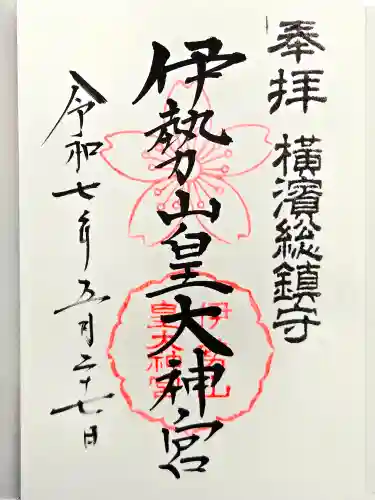 奉拝
横濱総鎮守
伊勢山皇大神宮
伊勢山
皇大神宮
令和七年五月二十七日